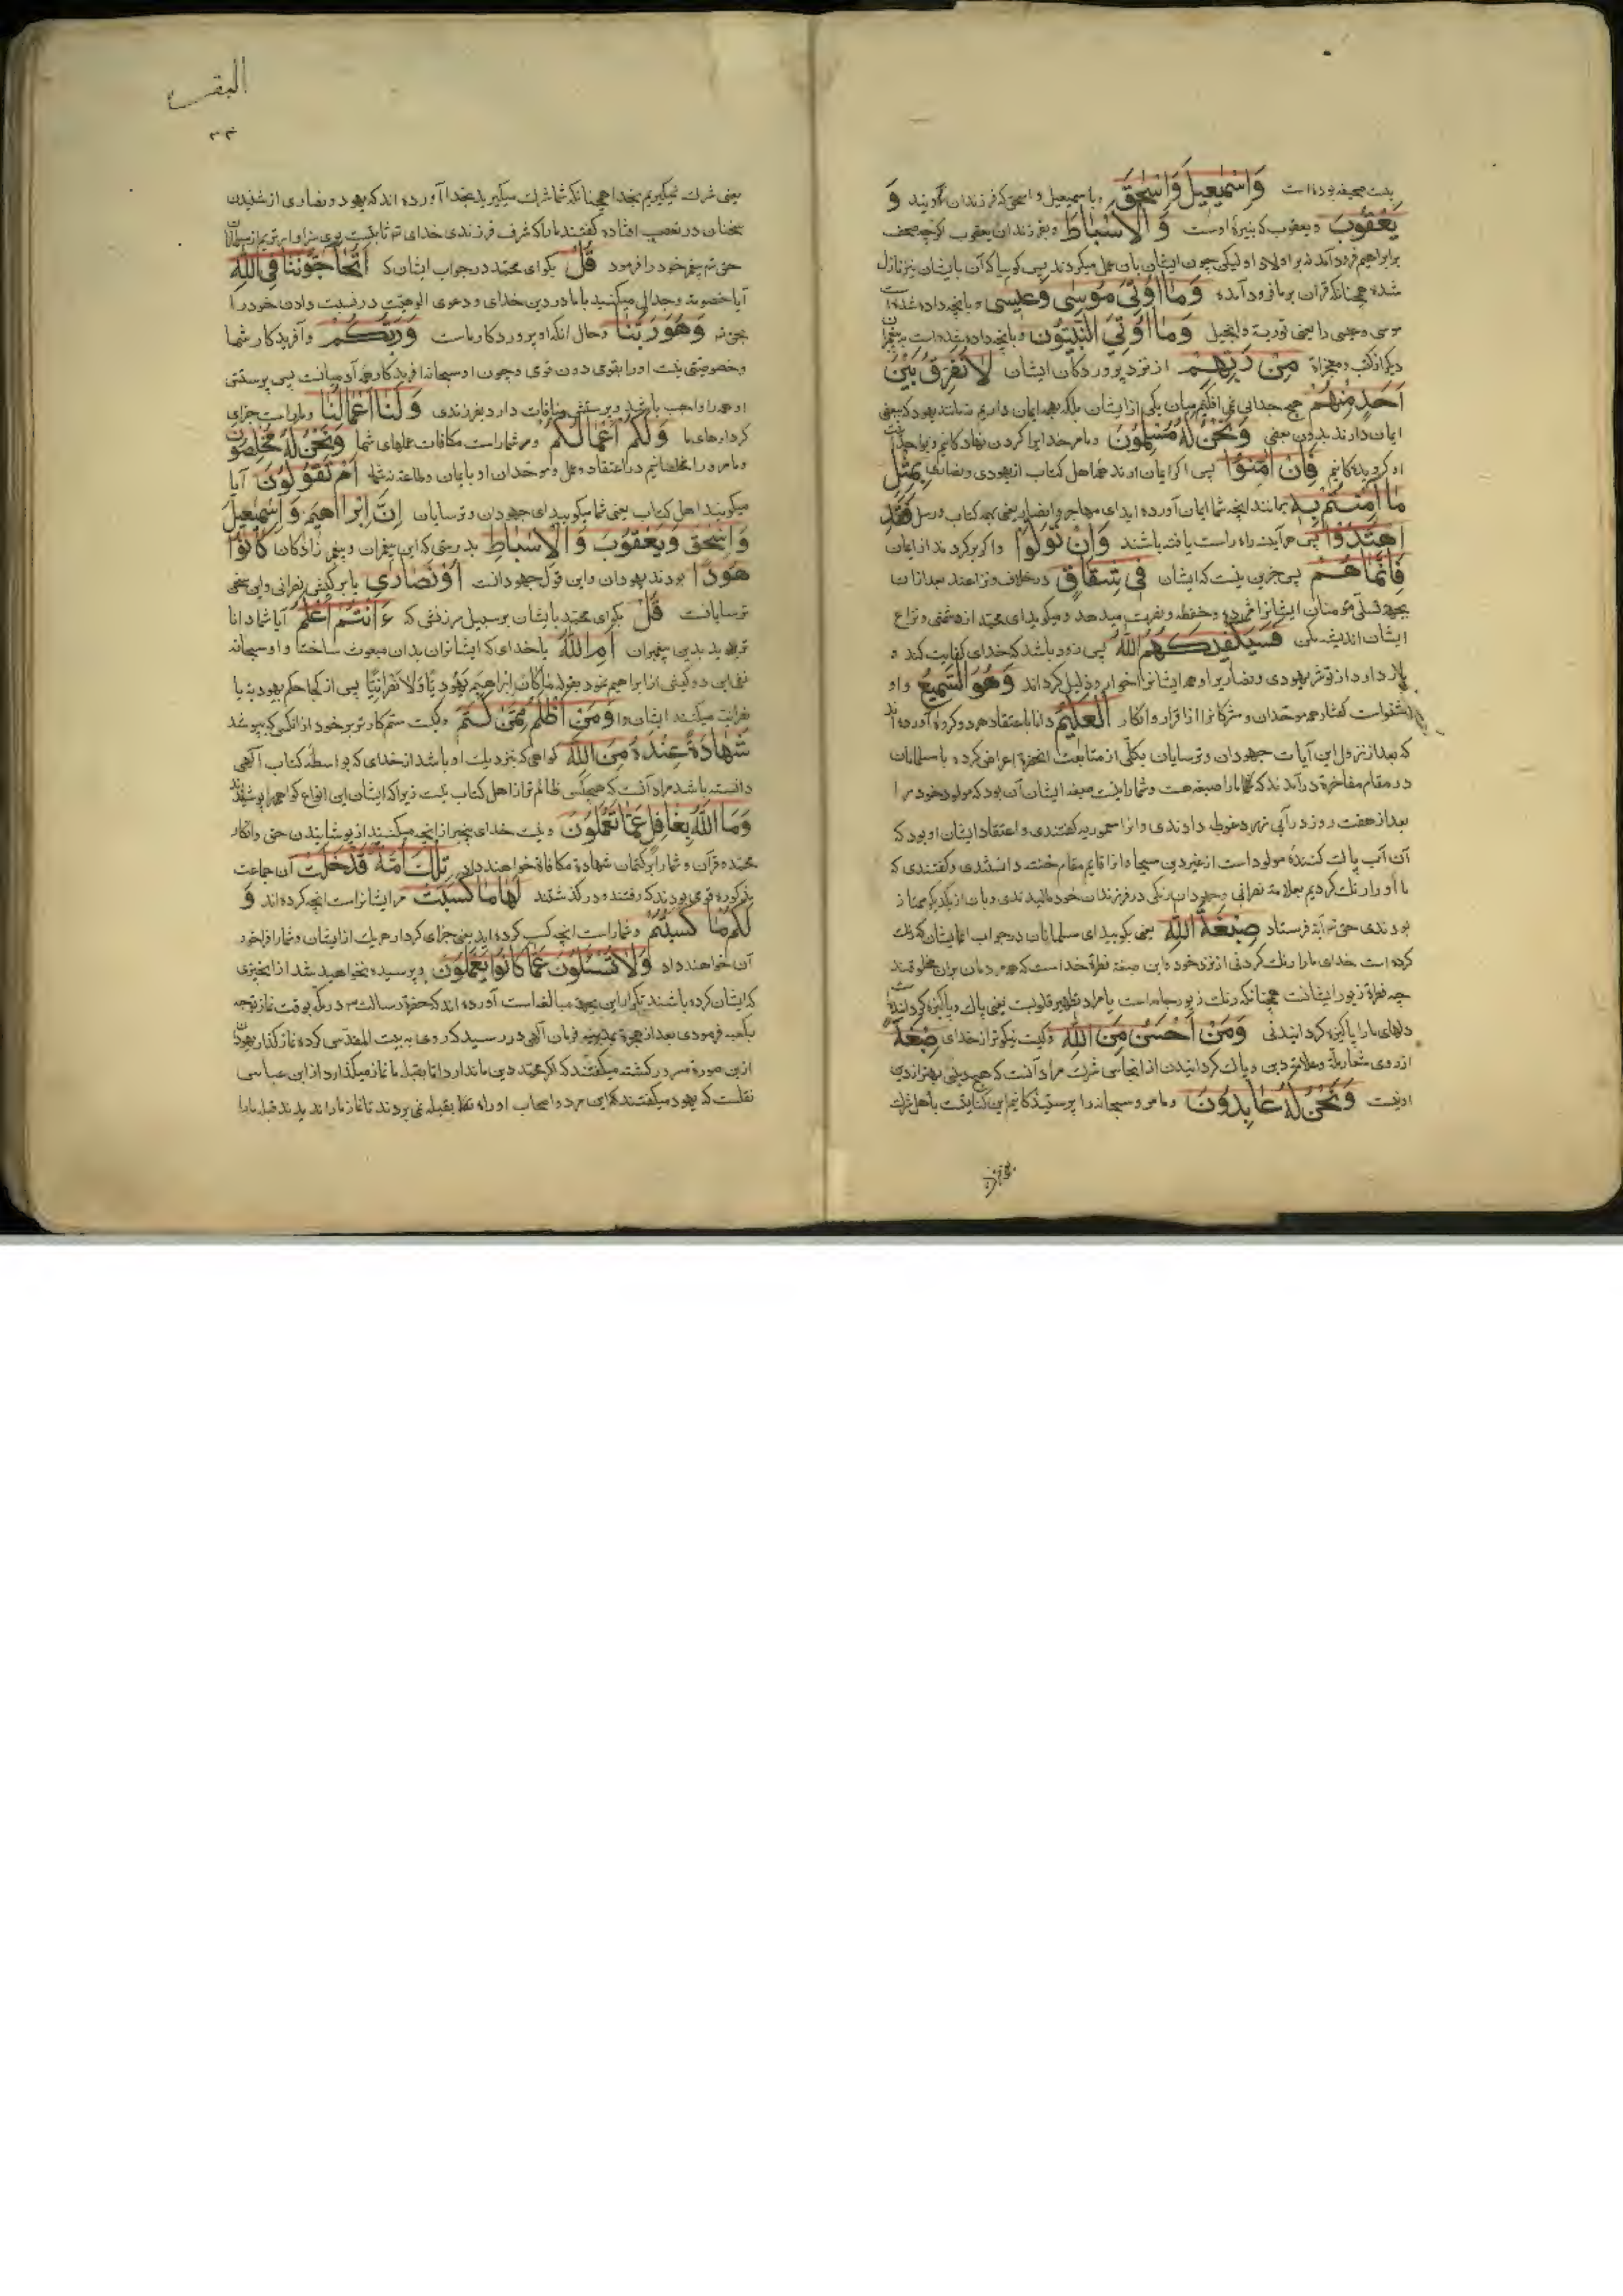 بیست صحیفه بوده است وَاِسْمٰعِیلَ وَاِسْحٰقَ و باسمعیل و اسحق که فرزندان اویند وَ
یَعْقُوبَ و یعقوب که نبیرهٔ اوست وَالْاَسْبَاطِ و بفرزندان یعقوب اگرچه صحف
بر ابراهیم فرود آمد نه بر اولاد او لیکن چون ایشان بآن عمل میکردند پس گوییا که آن بایشان نیز نازل
شده همچنانکه قرآن بر ما فرود آمده وَمَا اُوتِیَ مُوسٰی وَعِیسٰی و بآنچه داده شده است
موسی و عیسی را یعنی توریة و انجیل وَمَا اُوتِیَ النَّبِیُّونَ و بآنچه داده شده است پیغمبران
دیگر از کتب و معجزات مِنْ رَبِّهِمْ از نزد پروردگان ایشان لَا نُفَرِّقُ بَیْنَ
اَحَدٍ مِنْهُمْ هیچ جدایی نمی افکنیم میان یکی از ایشان بلکه بهمه ایمان داریم نه مانند یهود که ببعضی
ایمان دارند بدون بعضی وَنَحْنُ لَهُ مُسْلِمُونَ و ما مر خدایرا گردن نهادگانیم و بواحدانیت
او گرویدگانیم فَاِنْ اٰمَنُوا پس اگر ایمان آرند اهل کتاب از یهودی و نصاری بِمِثْلِ
مَا اٰمَنْتُمْ بِهِ بمانند آنچه شما ایمان آورده اید ای مهاجر و انصار یعنی بهمه کتاب و رسل فَقَدِ
اهْتَدَوْا پس هرآینه راه راست یافته باشند وَاِنْ تَوَلَّوْا و اگر برگردند از ایمان
فَاِنَّمَا هُمْ پس جزین نیست که ایشان فِی شِقَاقٍ در خلاف و نزاعند بعد از آن
بجهة تسلی مؤمنان ایشانرا مژده و حفظ و نصرت میدهد و میگوید ای محمد از دشمنی و نزاع
ایشان اندیشه مکن فَسَیَکْفِیکَهُمُ اللّٰهُ پس زود باشد که خدای کفایت کند و
باز دارد از تو شر یهودی و نصاری را و همه ایشانرا خوار و ذلیل گرداند وَهُوَ السَّمِیعُ و او
شنواست گفتار همه موحدان و مشرکانرا از اقرار و انکار الْعَلِیمُ دانا باعتقاد هر دو گروه آورده اند
که بعد از نزول این آیات جهودان و ترسایان بکلی از متابعت آنحضرة اعراض کرده با مسلمانان
در مقام مفاخرة درآمدند که ما را صبغه هست و شما را نیست صبغه ایشان آن بود که مولود خود را
بعد از هفت روز در آبی زرد غوطه دادندی و آنرا معمودیه گفتندی و اعتقاد ایشان او بود که
آن آب پاک کنندهٔ مولود است از غیر دین مسیحا و آنرا قایم مقام ختنه دانستندی و گفتندی که
ما او را رنگ کردیم بعلامة نصرانی و جهودان رنگی در فرزندان خود مالیدندی و بآن از یکدیگر ممتاز
بودندی حق تعم آیة فرستاد صِبْغَةَ اللّٰهِ یعنی بگویید ای مسلمانان در جواب ایشان که رنگ
کرده است خدای ما را رنگ کردنی از نزد خود و این صبغه فطرة خداست که مردمان بران مخلوقند
چه فطرة زیور ایشانست همچنانکه رنگ زیور جامه است یا مراد تطهیر قلوبست یعنی پاک و پاکیزه گردانیده است
دلهای ما را پاکیزه گردانیدنی وَمَنْ اَحْسَنُ مِنَ اللّٰهِ و کیست نیکوتر از خدای صِبْغَةً
از روی شعار ملّة و علامة دین و پاک گردانیدن از انجاس شرک مراد آنست که هیچ دینی بهتر از دین
او نیست وَنَحْنُ لَهُ عَابِدُونَ و ما مر او سبحانه را پرستیدگانیم این کنایتست باهل شرک
البقره
یعنی شرک نمیگیریم بخدا همچنانکه شما شرک میگیرید بخدا آورده اند که یهود و نصاری از شنیدن
سخنان در تعصب افتاده گفتند ما را که شرف فرزندی خدای تعم ثابتست
حق تعم پیغمبر خود را فرمود قُلْ بگو ای محمد در جواب ایشان که اَتُحَاجُّونَنَا فِی اللّٰهِ
آیا خصومة و جدال میکنید با ما در دین خدای و دعوی الوهیّت در نسبت دادن خود را
وَهُوَ رَبُّنَا و حال آنکه او پروردگار ماست وَرَبُّکُمْ و آفریدگار شما
و خصوصیتی نیست او را بقومی دون قومی و چون او سبحانه آفریدگار همه آدمیانست پس پرستش
او همه را واجب باشد و پرستش منافات دارد بفرزندی وَلَنَا اَعْمَالُنَا و ما راست جزای
کردارهای ما وَلَکُمْ اَعْمَالُکُمْ و مر شما راست مکافات عملهای شما وَنَحْنُ لَهُ مُخْلِصُونَ
و ما مر او را مخلصانیم در اعتقاد و عمل و موحدان او بایمان و طاعة نه شما اَمْ تَقُولُونَ آیا
میگویند اهل کتاب یعنی شما میگویید ای جهودان و ترسایان اِنَّ اِبْرَاهِیمَ وَاِسْمٰعِیلَ
وَاِسْحٰقَ وَیَعْقُوبَ وَالْاَسْبَاطَ بدرستی که این پیغمبران و پیغمبر زادگان کَانُوا
هُودًا بودند یهودان و این قول جهودانست اَوْ نَصَارٰی یا بر کیش نصرانی و این سخن
ترسایانست قُلْ بگو ای محمد بایشان بر سبیل سرزنش که ءَاَنْتُمْ اَعْلَمُ آیا شما داناترید
بدین پیغمبران اَمِ اللّٰهُ یا خدای که ایشانرا بدان مبعوث ساخته و او سبحانه
نفی این دو کیش از ابراهیم نمود بقوله مَا کَانَ اِبْرَاهِیمُ یَهُودِیًّا وَلَا نَصْرَانِیًّا پس از کجا حکم یهودیة یا
نصرانیت میکنند ایشان را وَمَنْ اَظْلَمُ مِمَّنْ کَتَمَ و کیست ستمکارتر بر خود از آنکس که بپوشد
شَهَادَةً عِنْدَهُ مِنَ اللّٰهِ گواهی که بنزدیک او باشد از خدای که بواسطهٔ کتاب آلهی
دانسته باشد مراد آنست که هیچکس ظالم تر از اهل کتاب نیست زیرا که ایشان این انواع گواهی را پوشیدند
وَمَا اللّٰهُ بِغَافِلٍ عَمَّا تَعْمَلُونَ و نیست خدای بیخبر از آنچه میکنند از پوشانیدن حق و انکار
محمد و قرآن و شما را بر کتمان شهادة مکافاة خواهند داد تِلْکَ اُمَّةٌ قَدْ خَلَتْ آن جماعت
مذکوره قومی بودند که رفتند و درگذشتند لَهَا مَا کَسَبَتْ مر ایشانراست آنچه کرده اند وَ
لَکُمْ مَا کَسَبْتُمْ و شما راست آنچه کسب کرده اید یعنی جزای کردار هر یک از ایشان و شما را فراخور
آن خواهند داد وَلَا تُسْئَلُونَ عَمَّا کَانُوا یَعْمَلُونَ و پرسیده نخواهید شد از آنچیزی
که ایشان کرده باشند تکرار این بجهة مبالغه است آورده اند که حضرة رسالت ص در مکه بوقت نماز توجه
بکعبه فرمودی بعد از هجرة بمدینه فرمان آلهی در رسید که روی به بیت المقدس کرده نماز گذار یهودان
ازین صورة مسرور گشته میگفتند که اگر محمد دین ما ندارد اما بقبلهٔ ما نماز میگذارد از ابن عباس
نقلست که یهود میگفتند که این مرد و اصحاب او راه بقبله نمی بردند تا نماز ما را ندیدند قبله ما را